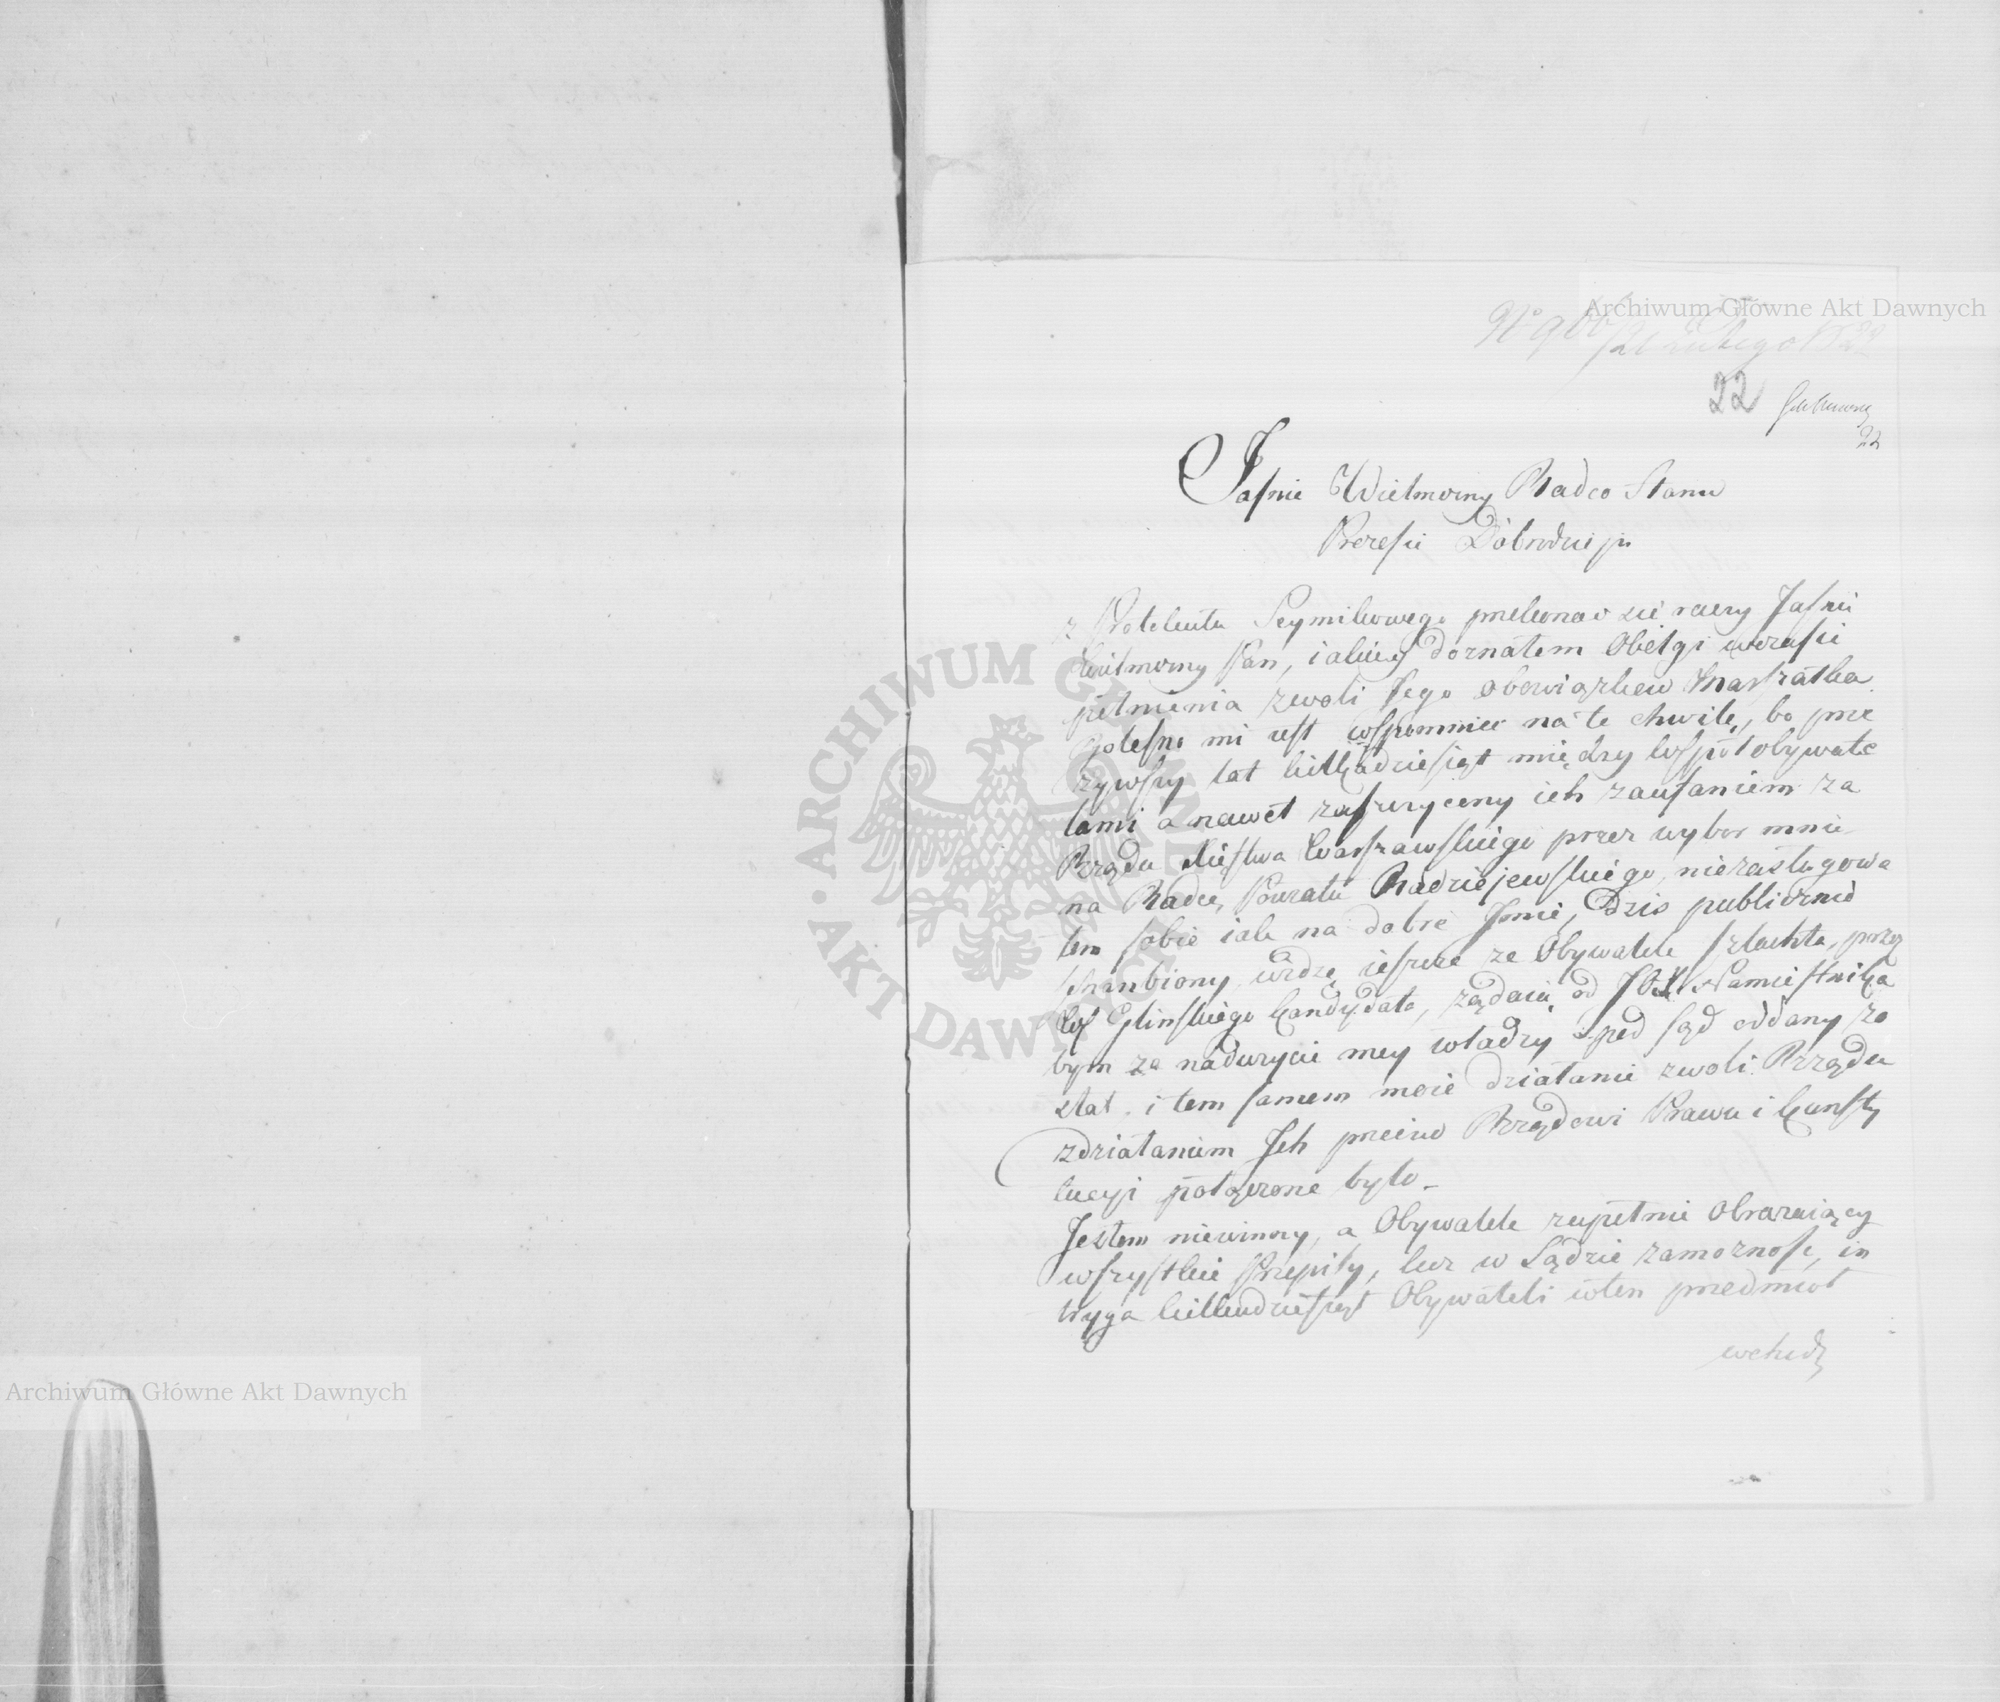 Archiwum Główne Akt Dawnych
22
22
Jaśnie Wielmożny Radco Stanu
Prezesie Dobrodzieju
z Protokułu Seymikowego przekonać się raczy Jaśnie
Wielmożny Pan, iakiey doznałem Obelgi wczasie
pełnienia zwoli Jego obowiązków Marszałka
Bolesno mi iest wspomnieć na te chwile, bo prze
żywszy lat kilkadziesiąt między współobywate
lami a nawet zaszczycony ich zaufaniem za
Rządu Xięstwa Warszawskiego przez wybor mnie
na Radcę Powiatu Radziejewskiego, niezasługowa
łem sobie iak na dobre Jmie, dziś publicznie
shanbiony, widzę ieszcze że Obywatele szlachta, przez
Glinskiego Kandydata, żądaią od JO Xcia Namiestnika
bym za nadużycie mey władzy pod sąd oddany zo
stał i tem samem moie działanie zwoli Rządu
zdziałaniem Jch przeciw Rządowi Prawu i Konsty
tucyi połączone było –
Jestem niewinny, a Obywatele zupełnie Obrażaiący
wszystkie Przepisy, lecz w Sądzie zamożność, in
tryga kilkudziesiąt Obywateli wten przedmiot
wchodz
Archiwum Główne Akt Dawnych
ARCHIWUM GŁÓWNE AKT DAWNYCH